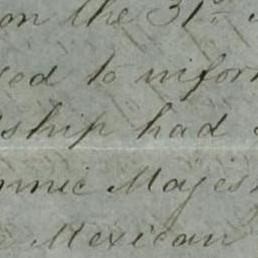 on the 31st
ed to inform
ship had
nnic Majes
Mexican